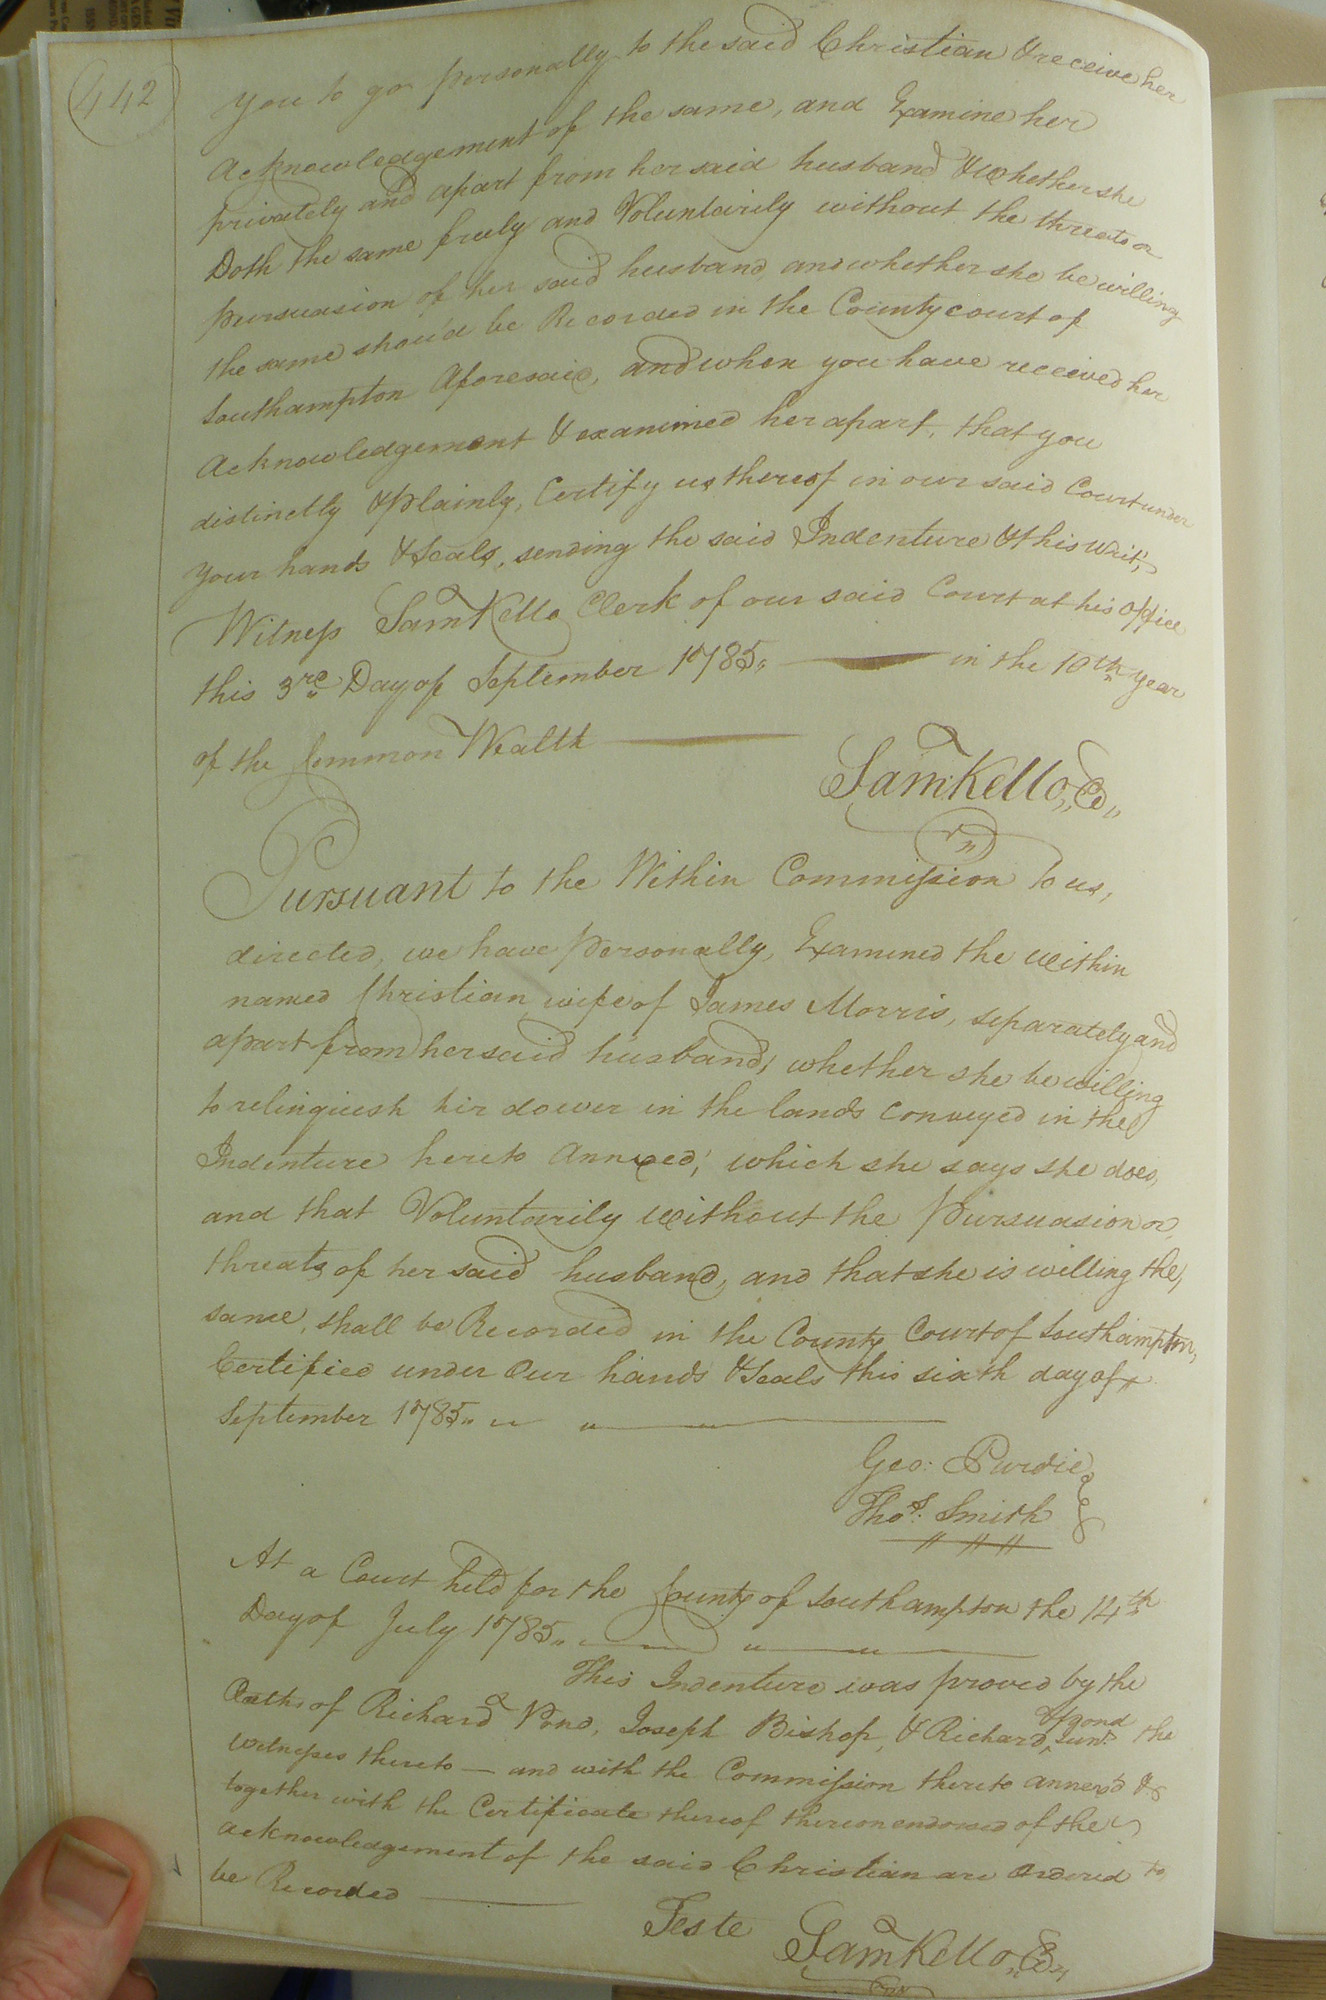 442
you to go personally to the said Christian & receive her
Acknowledgement of the same, and Examine her
privately and apart from her said husband & whether she
Doth the same freely and Voluntarily without the threats or
pursuasion of her said husband, and whether she be willing
the same shou'd be Recorded in the County court of
Southampton Aforesaid, and when you have received her
Acknowledgement & examined her apart, that you
distinctly & plainly, Certify us thereof in our said Court under
your hands & Seals, sending the said Indenture & this writ,
Witness Sam Kello Clerk of our said Court at his office
this 3rd Day of September 1785 in the 10th year
of the Common Wealth
Sam Kello,
Pursuant to the Within Commission to us,
directed, we have personally, Examined the within
named Christian wife of James Morris, separately and
apart from her said husband, whether she be willing
to relinquish her dower in the lands conveyed in the
Indenture hereto Annexed, which she says she does,
and that Voluntarily without the Pursuasion or
threats of her said husband, and that she is willing the,
same, shall be Recorded in the County Court of Southampton,
Certified under Our hands & Seals this sixth day of
September 1785
Geo: Purdie
Thos. Smith
At a Court held for the County of Southampton the 14th
Day of July 1785
This Indenture was proved by the
Oaths of Richard Pond, Joseph Bishop, & Richard Pond Junr. the
witnesses thereto — and with the Commission thereto annex'd &
together with the Certificate thereof thereon endorsed of the
acknowledgement of the said Christian are Ordered to
be Recorded
Teste Sam Kello,